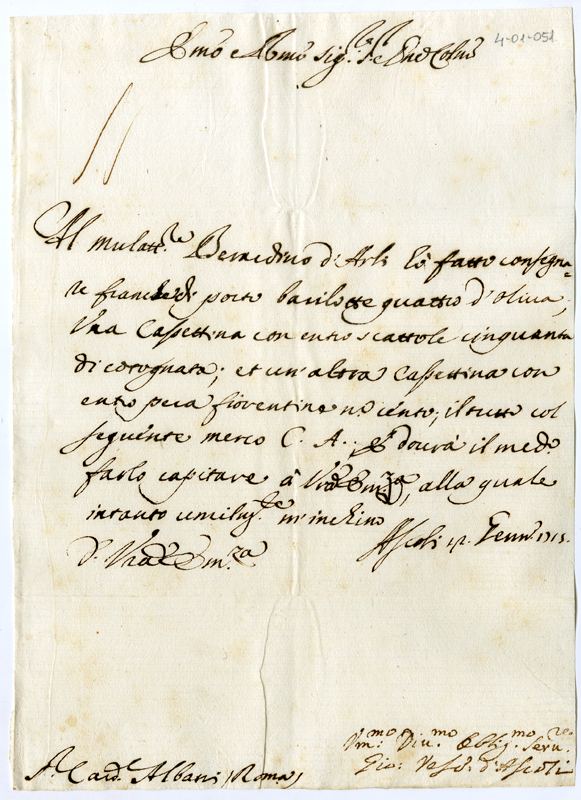 4-01-051
Emo e Rmo Sig.re P.ne Col.mo
Al mulatt.re Berardino d'Arli hò fatto consegna=
re franche di porto barilotte quattro d'oliva;
Una Cassettina con entro scattole cinquanta
di cotognata; et un'altra Cassettina con
entro pera fiorentine nº cento; il tutto col
seguente merco C. A.; E dourà il med.o
farlo capitare à Vra Em.za, alla quale
intanto umiliss.te m'inchino
D. Vra Em.za
Ascoli Genn.o 1715.
Vm.mo Diu.mo Oblig.mo Seru.re
Gio: Vesc.o d'Ascoli
S.r Card.e Albani (Roma)